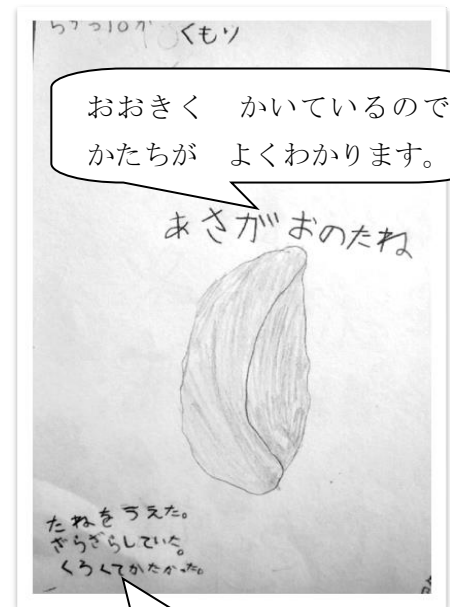 くもり
おおきく　かいているので
かたちが　よくわかります。
あさがおのたね
たねをうえた。
ざらざらしていた。
くろくてかたかった。